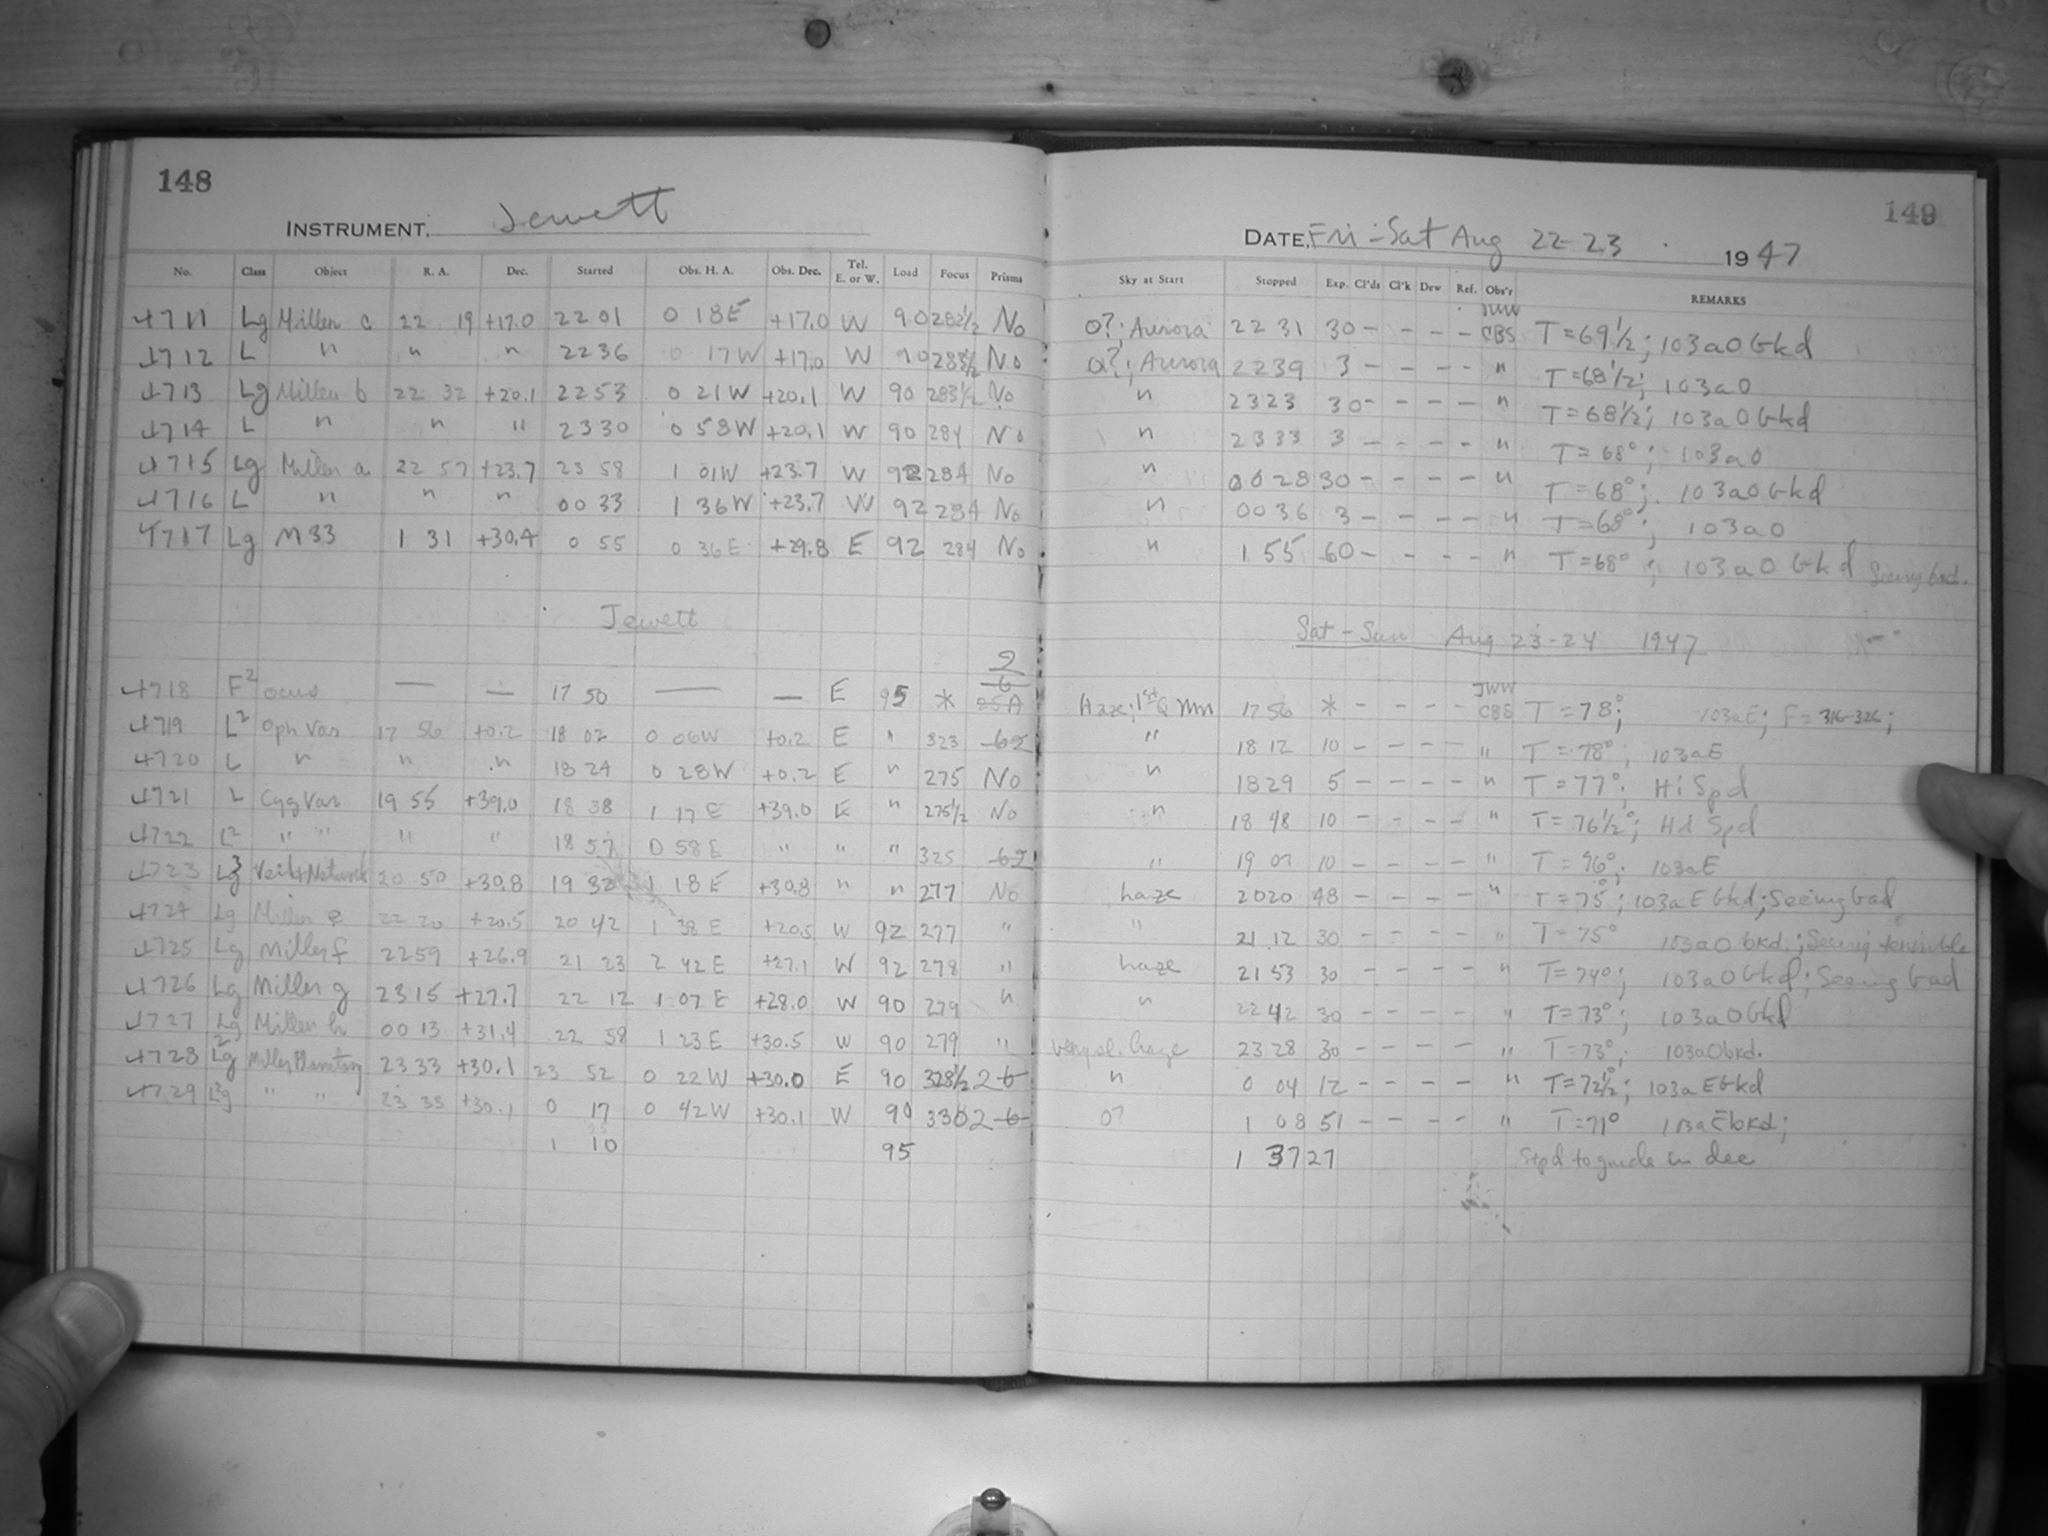 148
INSTRUMENT. Jewett
No. Class Object R. A. Dec. Started Obs. H. A. Obs. Dec. Tel. E. or W. Load Focus Prisms
4711 Lg Miller c 22 19 +17.0 22 01 0 18E +17.0 W 90 282½ No
4712 L " " " 22 36 0 17W +17.0 W 90 283½ No
4713 Lg Miller b 22 32 +20.1 22 53 0 21W +20.1 W 90 283½ No
4714 L " " " 23 30 0 58W +20.1 W 90 284 No
4715 Lg Miller a 22 57 +23.7 23 58 1 01W +23.7 W 92 284 No
4716 L " " " 00 33 1 36W +23.7 W 92 284 No
4717 Lg M33 1 31 +30.4 0 55 0 36E +29.8 E 92 284 No
Jewett
4718 F² Focus — — 17 50 — — E 95 * 2 6
4719 L² Oph Var 17 56 +0.2 18 02 0 06W +0.2 E " 323
4720 L " " " 18 24 0 28W +0.2 E " 275 No
4721 L Cyg Var 19 55 +39.0 18 38 1 17E +39.0 E " 275½ No
4722 L² " " " " 18 57 0 58E " " " 325
4723 Lg Veil+Network 20 50 +30.8 19 32 1 18E +30.8 " " 277 No
4724 Lg Miller e 22 20 +20.5 20 42 1 38E +20.5 W 92 277 "
4725 Lg Miller f 22 59 +26.9 21 23 2 42E +27.1 W 92 278 "
4726 Lg Miller g 23 15 +27.7 22 12 1 07E +28.0 W 90 279 "
4727 Lg Miller h 00 13 +31.4 22 58 1 23E +30.5 W 90 279 "
4728 L²g Miller Planetary 23 33 +30.1 23 52 0 22W +30.0 E 90 328½ 2-6
4729 L²g " " 23 33 +30.1 0 17 0 42W +30.1 W 90 330 2-6
1 10 95
149
DATE, Fri-Sat Aug 22-23 1947
Sky at Start Stopped Exp. Cl'ds Cl'k Dew Ref. Obs'r REMARKS
JWW
0?; Aurora 22 31 30 - - - - CBS T=69½; 103aO bkd
0?; Aurora 22 39 3 - - - - " T=68½; 103aO
" 23 23 30 - - - - " T=68½; 103aO bkd
" 23 33 3 - - - - " T=68°; 103aO
" 00 28 30 - - - - " T=68°; 103aO bkd
" 00 36 3 - - - - " T=68°; 103aO
" 1 55 60 - - - - " T=68°; 103aO bkd Seeing bad.
Sat-Sun Aug 23-24 1947
JWW
Haze; 1st Q Mn 17 56 * - - - - CBS T=78°; 103aE; F=316-326;
" 18 12 10 - - - - " T=78°; 103aE
" 18 29 5 - - - - " T=77°; Hi Spd
" 18 48 10 - - - - " T=76½°; Hi Spd
" 19 07 10 - - - - " T=76°; 103aE
haze 20 20 48 - - - - " T=75°; 103aE bkd; Seeing bad
" 21 12 30 - - - - " T=75° 103aO bkd.; Seeing terrible
haze 21 53 30 - - - - " T=74°; 103aO bkd; Seeing bad
" 22 42 30 - - - - " T=73°; 103aO bkd
very sl. haze 23 28 30 - - - - " T=73°; 103aO bkd.
" 0 04 12 - - - - " T=72½°; 103aE bkd
0? 1 08 51 - - - - " T=71° 103aE bkd;
1 37 27 Stpd to guide in dec